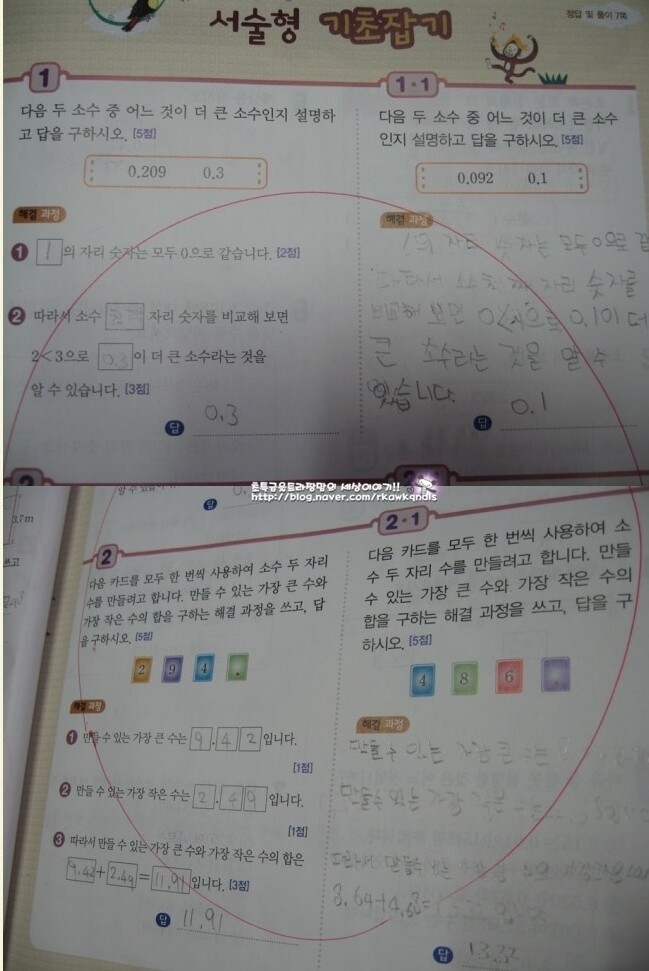 서술형 기초잡기
정답 및 풀이 7쪽
1
다음 두 소수 중 어느 것이 더 큰 소수인지 설명하
고 답을 구하시오. [5점]
0.209 0.3
해결 과정
1 1의 자리 숫자는 모두 0으로 같습니다. [2점]
2 따라서 소수 자리 숫자를 비교해 보면
2<3으로 0.3이 더 큰 소수라는 것을
알 수 있습니다. [3점]
답 0.3
1·1
다음 두 소수 중 어느 것이 더 큰 소수
인지 설명하고 답을 구하시오. [5점]
0.092 0.1
해결 과정
1의 자리 숫자는 모두 0으로 같
따라서 소수 첫째 자리 숫자를
비교해 보면 0<1으로 0.1이 더
큰 소수라는 것을 알 수
있습니다.
답 0.1
http://blog.naver.com/rkawkqndls
3.7m
쓰고
알 수 있습니다. [3점]
답
2
다음 카드를 모두 한 번씩 사용하여 소수 두 자리
수를 만들려고 합니다. 만들 수 있는 가장 큰 수와
가장 작은 수의 합을 구하는 해결 과정을 쓰고, 답
을 구하시오. [5점]
2 9 4 .
해결 과정
1 만들 수 있는 가장 큰 수는 9.42입니다.
[1점]
2 만들 수 있는 가장 작은 수는 2.49입니다.
[1점]
3 따라서 만들 수 있는 가장 큰 수와 가장 작은 수의 합은
9.42+2.49=11.91입니다. [3점]
답 11.91
2·1
다음 카드를 모두 한 번씩 사용하여 소
수 두 자리 수를 만들려고 합니다. 만들
수 있는 가장 큰 수와 가장 작은 수의
합을 구하는 해결 과정을 쓰고, 답을 구
하시오. [5점]
4 8 6 .
해결 과정
만들 수 있는 가장 큰 수는
만들 수 있는 가장 작은 수는
따라서 만들 수 있는 가장 큰
8.64+4.68=13.32
답 13.32